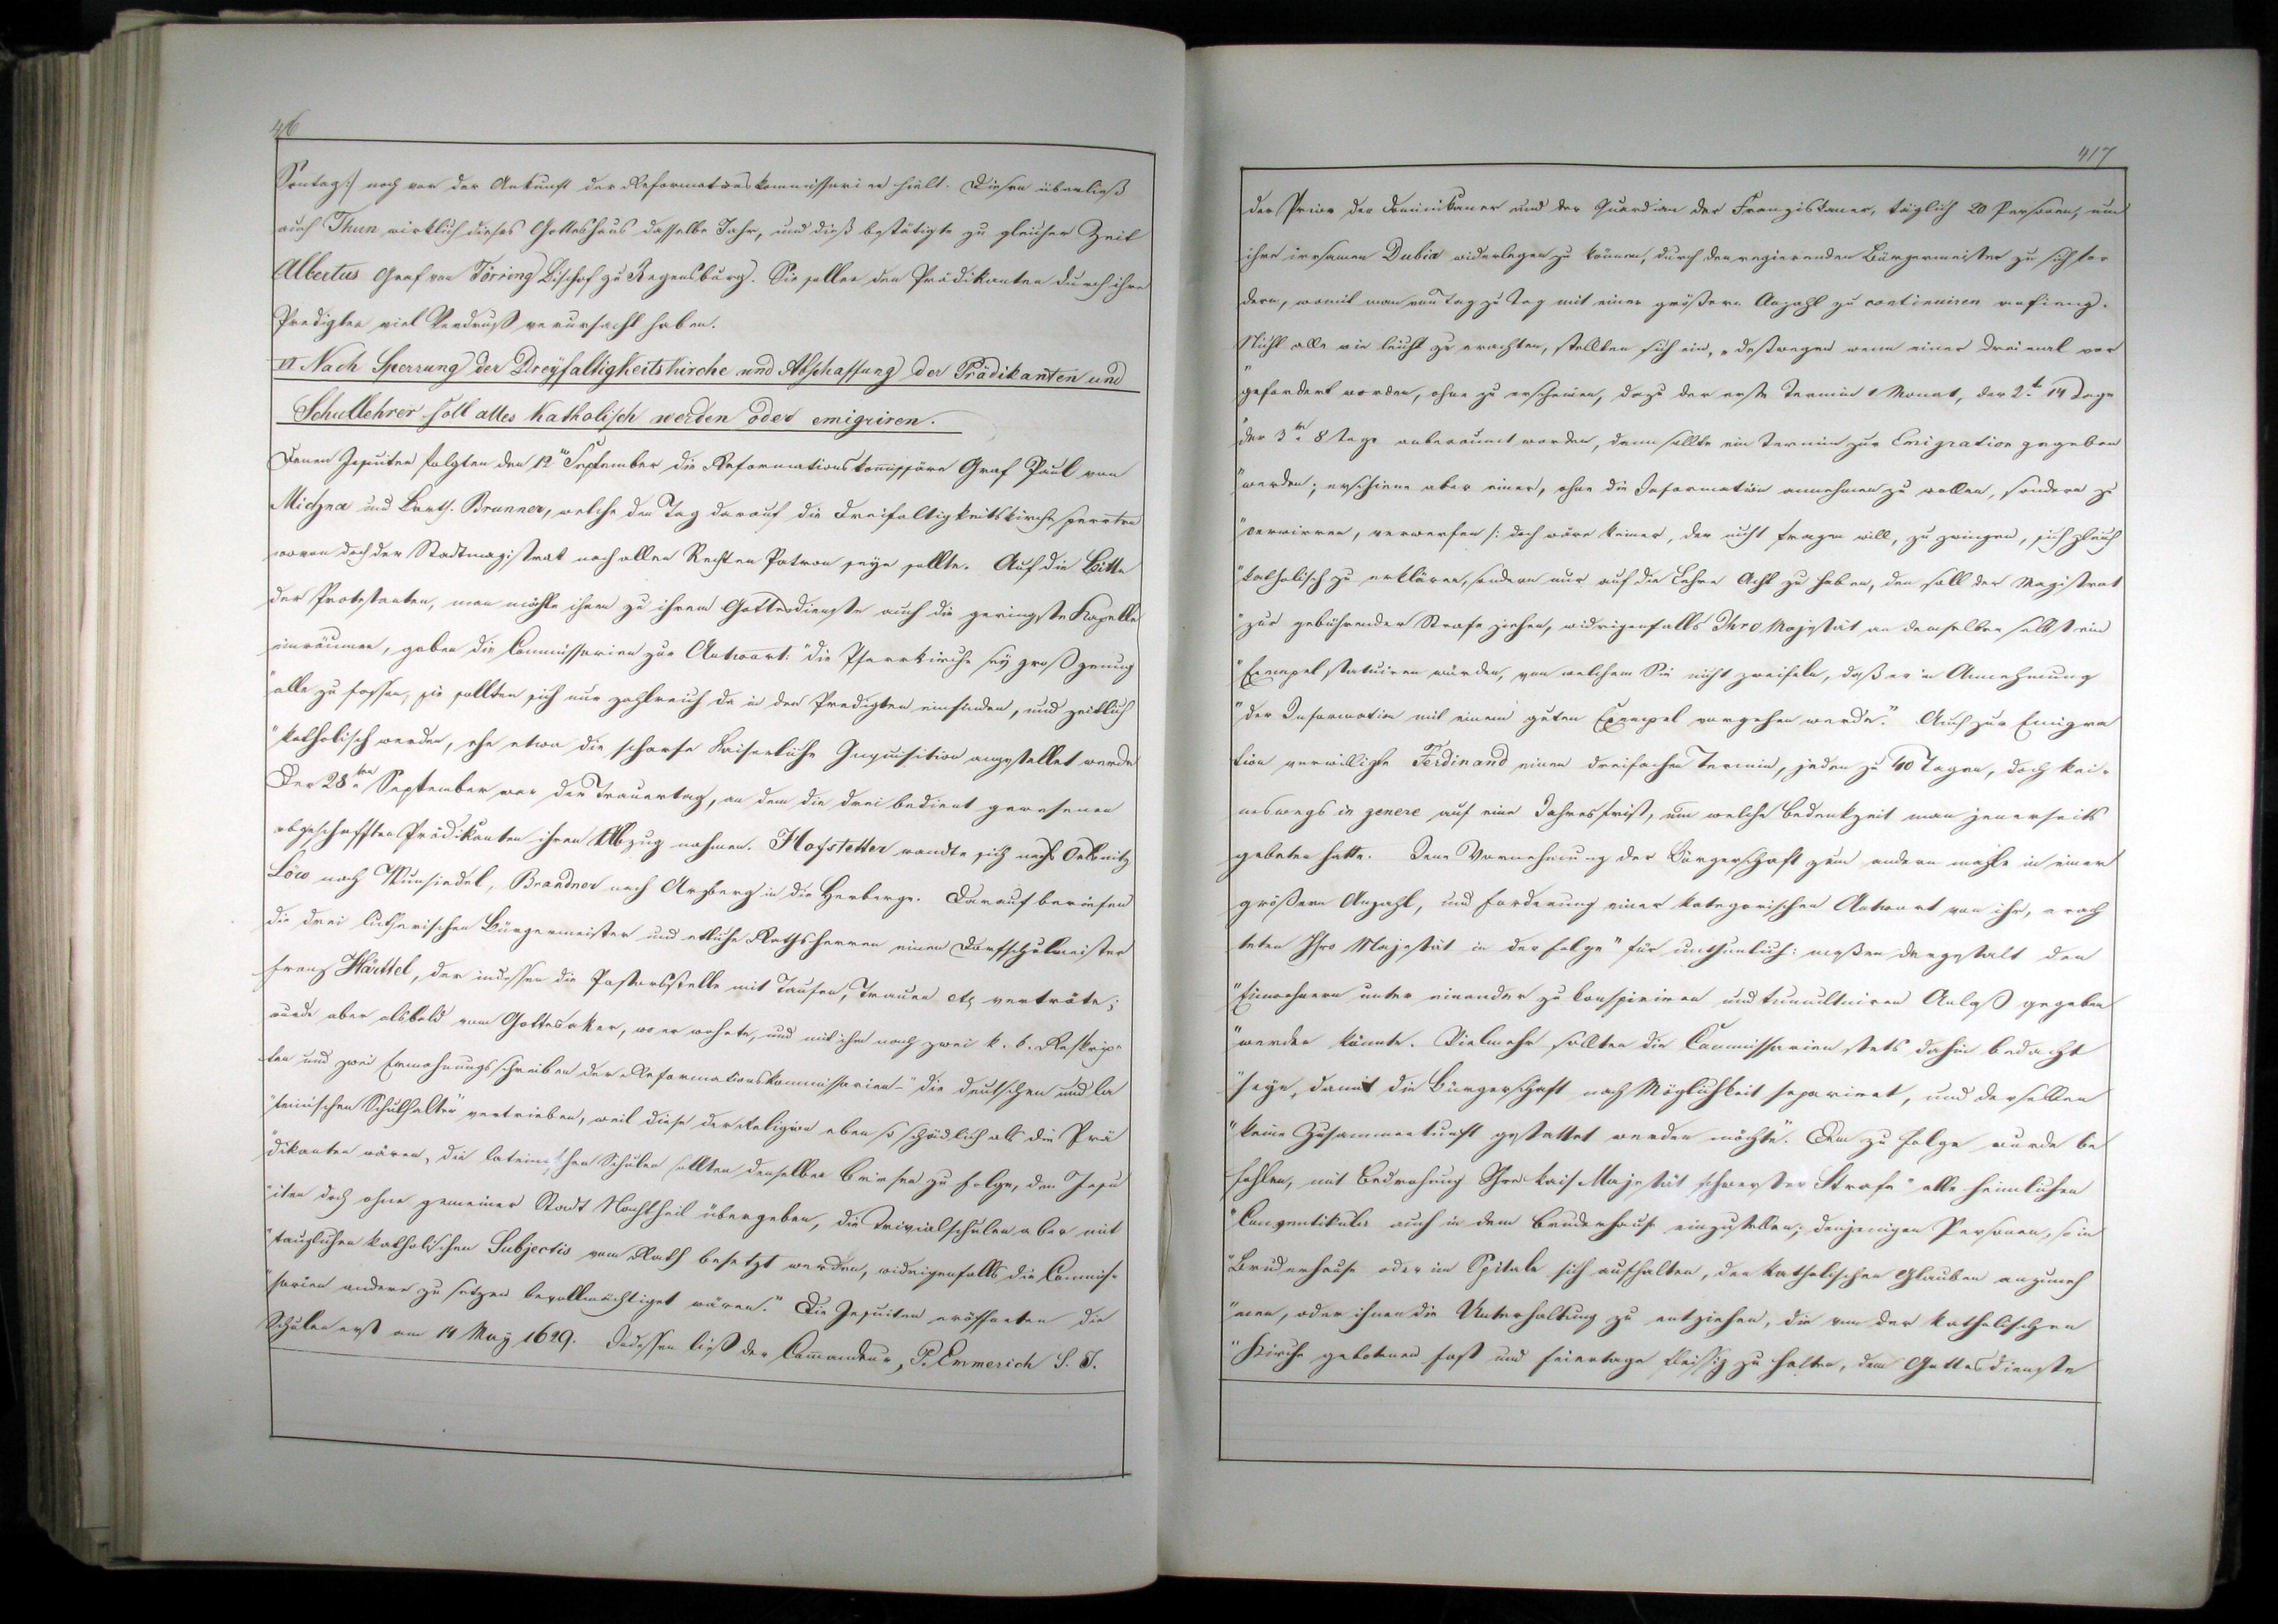 46
Sontag:/ noch vor der Ankunft der Reformationskommissarien hielt. Diesen überließ
auch Thun wirklich dieses Gotteshaus dasselbe Jahr, und dieß bestätigte zu gleicher Zeit
Albertus Graf von Törring Bischof zu Regensburg. Sie sollen den Prädikanten durch ihre
Predigten viel Verdruß verursacht haben.
VI Nach Sperrung der Dreyfaltigkeitskirche und Abschaffung der Prädikanten und
Schullehrer soll alles Katholisch werden oder emigriren.
Denen Jesuiten folgten den 12 September die Reformationskommissäre Graf Paul von
Michna und Barth. Brunner, welche den Tag darauf die Dreifaltigkeitskirche sperrten
wovon doch der Stadtmagistrat nach allen Rechten Patron seyn sollte. Auf die Bitte
der Protestanten, man möchte ihnen zu ihrem Gottesdienste auch die geringste Kapelle
einräumen, gaben die Commissarien zur Antwort: "die Pfarrkirche sey groß genug
"alle zu fassen, sie sollten sich nur zahlreich da in den Predigten einfinden, und zeitlich
"katholisch werden, ehe etwa die scharfe Kaiserliche Inquisition angestellet werde
Der 28ten September war der Trauertag, an dem die drei bedient gewesenen
abgeschafften Prädikanten ihren Abzug nahmen. Hofstetter wandte sich nach Oelsnitz
Löw nach Wunsiedel, Brandner nach Arzberg in die Herberge. Darauf beriefen
die drei lutherischen Bürgermeister und etliche Rathsherren einen Dorfschulmeister
Franz Härttel, der indessen die Pastorsstelle mit Taufen, Trauen etc verträte;
wurde aber alsbald vom Gottesaker, wo er wohnte, und mit ihm nach zwei k. k. Reskrip¬
ten und zwei Ermahnungsschreiben der Reformationskommissarien - "die deutschen und la
"teinischen Schulhalter" vertrieben, weil diese der Religion eben so schädlich als die Prä
"dikanten wären, die lateinischen Schulen sollten denselben Briefen zu Folge, den Jesu
"iten doch ohne gemeiner Stadt Nachtheil übergeben, die Trivialschulen aber mit
"tauglichen katholischen Subjectis vom Rath besetzt werden, widrigenfalls die Commis¬
"sarien andere zu setzen bevollmächtiget wären." Die Jesuiten eröffneten die
Schulen erst am 14 May 1629. Indessen ließ der Commandeur, P. Emmerich S. J.
417
der Prior der Dominikaner und der Guardian der Franziskaner, täglich 20 Personen, um
ihre irrsamen Dubia widerlegen zu können, durch den regierenden Bürgermeister zu sich for
dern, womit man von Tag zu Tag mit einer größern Anzahl zu continuiren anfieng.
Nicht alle wie leicht zu erachten, stellten sich ein, "deßwegen wenn einer dreimal vor
"gefordert worden, ohne zu erscheinen, dazu der erste Termin 1 Monat, der 2t 14 Tage
"der 3te 8 Tage anberaumt worden, dann sollte ein Termin zur Emigration gegeben
"werden; erschiene aber einer, ohne die Information annehmen zu wollen, sondern zu
"verwirren, verwerfen /: doch wäre keiner, der nicht fragen will, zu zwingen, sich gleich
"katholisch zu erklären, sondern nur auf die Lehre Acht zu haben, den soll der Magistrat
"zur gebührender Strafe ziehen, widrigenfalls Ihro Majestät an demselben selbst ein
"Exempel statuiren würden, von welchem Sie nicht zweifeln, daß er in Annehmung
"der Information mit einem guten Exempel vorgehen werde." Auch zur Emigra
tion verwilligte Ferdinand einen dreifachen Termin, jeden zu 40 Tagen, doch kei¬
neswegs in genere auf eine Jahresfrist, um welche Bedenkzeit man jenerseits
gebeten hatte. Jene Vornehmung der Bürgerschaft zum andern mahle in einer
größern Anzahl, und Forderung einer kategorischen Antwort von ihr, erach
teten Ihro Majestät in der Folge "für unthunlich: maßen dergestalt den
"Einwohnern unter einander zu konspiriren und tumultuiren Anlaß gegeben
"werden könnte. Vielmehr sollten die Commissarien stets dahin bedacht
"seyn, damit die Bürgerschaft nach Möglichkeit separiret, und derselben
"keine Zusammenkunft gestattet werden möchte." Dem zu Folge wurde be
fohlen, mit Bedrohung Ihro kais Majestät schwerster Strafe "alle heimlichen
"Conventikuln auch in dem Bruderhause einzustellen; denjenigen Personen, so im
"Bruderhause oder im Spitale sich aufhalten, den katholischen Glauben anzuneh
"men, oder ihnen die Unterhaltung zu entziehen, die von der katholischen
"Kirche gebotenen Fast und Feiertage fleissig zu halten, dem Gottesdienste